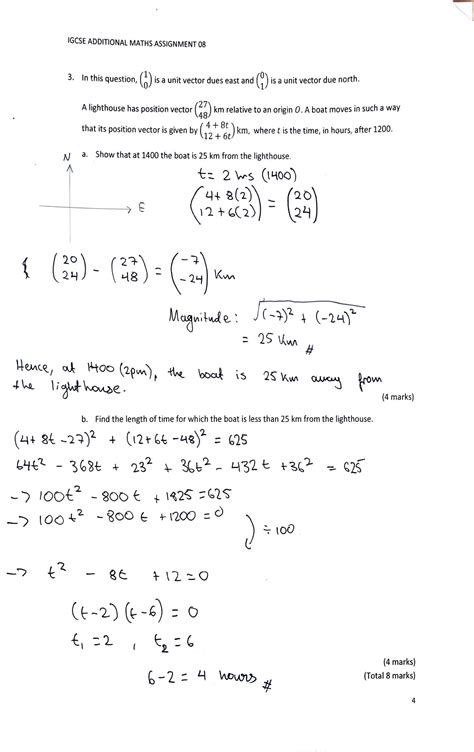 IGCSE ADDITIONAL MATHS ASSIGNMENT 08
3. In this question, (1 0) is a unit vector dues east and (0 1) is a unit vector due north.
A lighthouse has position vector (27 48) km relative to an origin O. A boat moves in such a way
that its position vector is given by (4 + 8t 12 + 6t) km, where t is the time, in hours, after 1200.
a. Show that at 1400 the boat is 25 km from the lighthouse.
N
E
t = 2 hrs (1400)
(4 + 8(2) 12 + 6(2)) = (20 24)
{ (20 24) - (27 48) = (-7 -24) Km
Magnitude: √(-7)² + (-24)²
= 25 Km #
Hence, at 1400 (2pm), the boat is 25 Km away from
the lighthouse.
(4 marks)
b. Find the length of time for which the boat is less than 25 km from the lighthouse.
(4 + 8t - 27)² + (12 + 6t - 48)² = 625
64t² - 368t + 23² + 36t² - 432t + 36² = 625
-> 100t² - 800t + 1825 = 625
-> 100t² - 800t + 1200 = 0
÷ 100
-> t² - 8t + 12 = 0
(t-2)(t-6) = 0
t₁ = 2 , t₂ = 6
6 - 2 = 4 hours #
(4 marks)
(Total 8 marks)
4